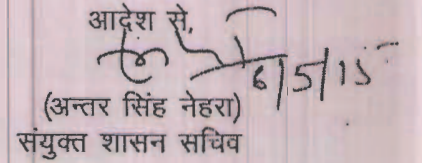 आदेश से,
6/5/15
(अन्तर सिंह नेहरा)
संयुक्त शासन सचिव